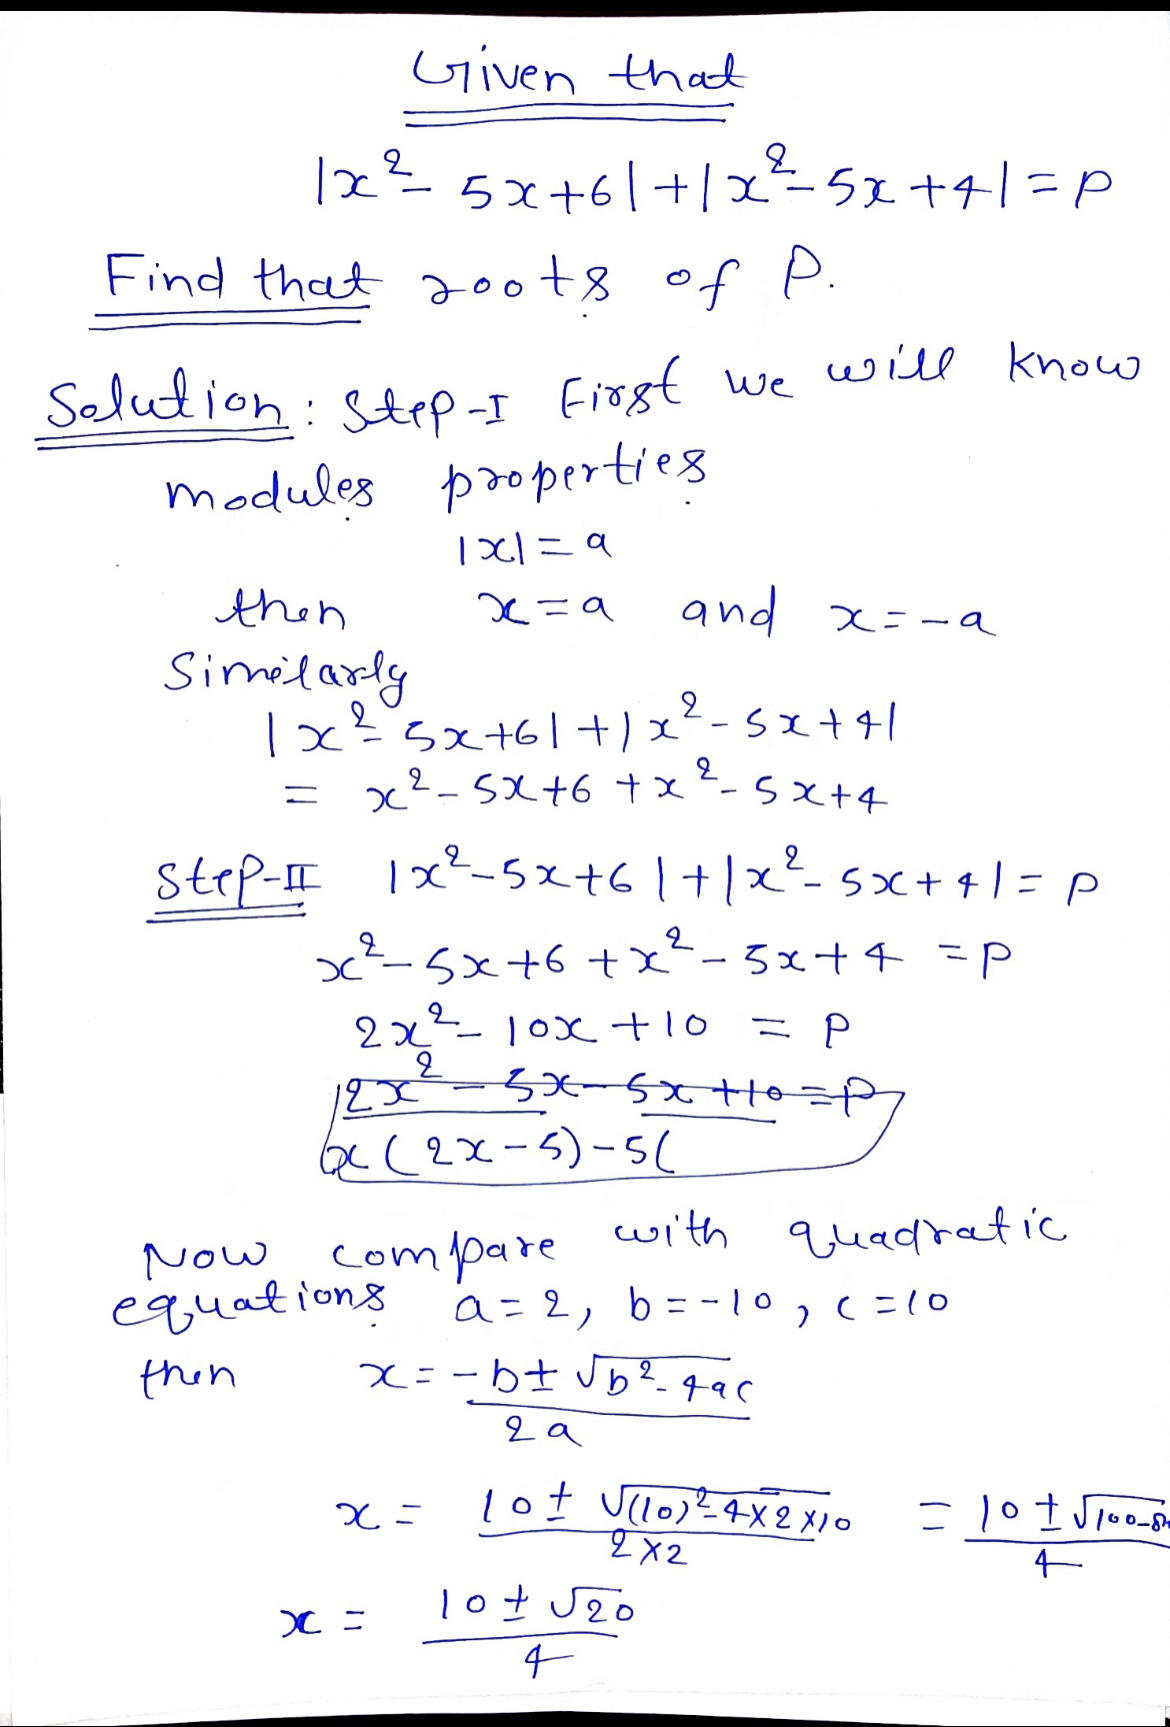 Given that
|x²- 5x+6|+|x²-5x+4|=p
Find that roots of P.
Solution: Step-I First we will know
modules properties
|x|=a
then x=a and x=-a
Similarly
|x²-5x+6|+|x²-5x+4|
= x²-5x+6+x²-5x+4
Step-II |x²-5x+6|+|x²-5x+4|=p
x²-5x+6+x²-5x+4 =p
2x²-10x+10 = p
2x²-5x-5x+10=p
x(2x-5)-5(
Now compare with quadratic
equations a=2, b=-10, c=10
then x=-b±√b²-4ac
2a
x= 10±√(10)²-4×2×10 = 10±√100-80
2×2 4
x= 10±√20
4